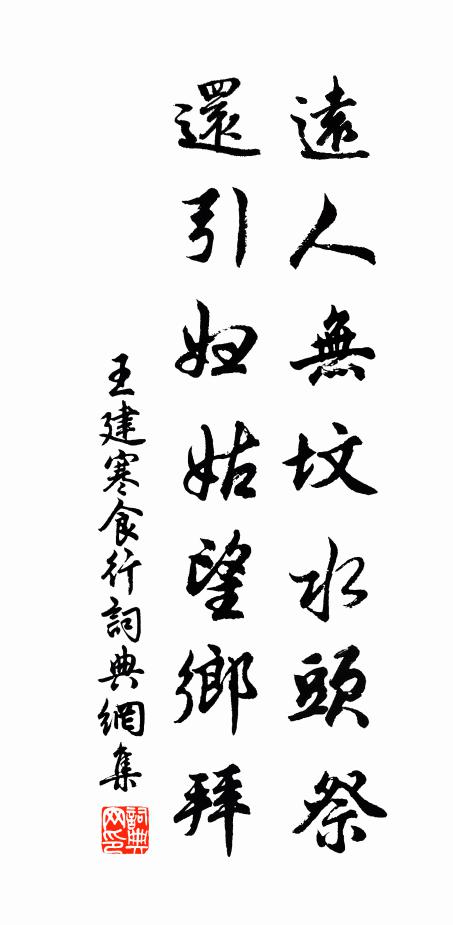 遠人無墳水頭祭
還引妇姑望鄉拜
王建寒食行詞典網集
詞典
网印